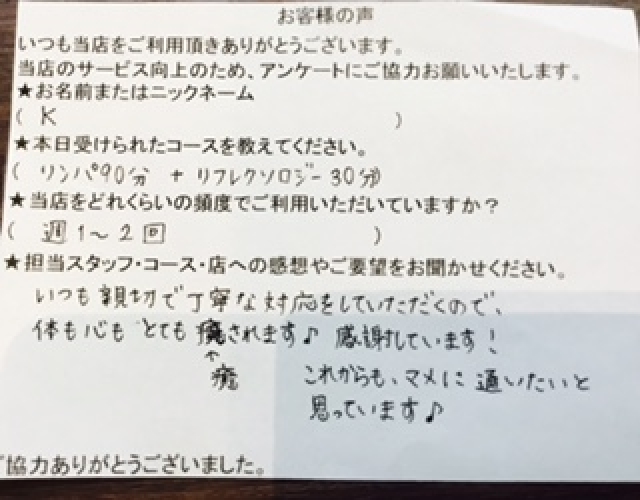 お客様の声
いつも当店をご利用頂きありがとうございます。
当店のサービス向上のため、アンケートにご協力お願いいたします。
★お名前またはニックネーム
( K )
★本日受けられたコースを教えてください。
( リンパ90分 + リフレクソロジー30分
★当店をどれくらいの頻度でご利用いただいていますか？
( 週1～2回 )
★担当スタッフ・コース・店への感想やご要望をお聞かせください。
いつも親切で丁寧な対応をしていただくので、
体も心もとても癒されます♪ 感謝しています！
↑
癒
これからも、マメに通いたいと
思っています♪
ご協力ありがとうございました。